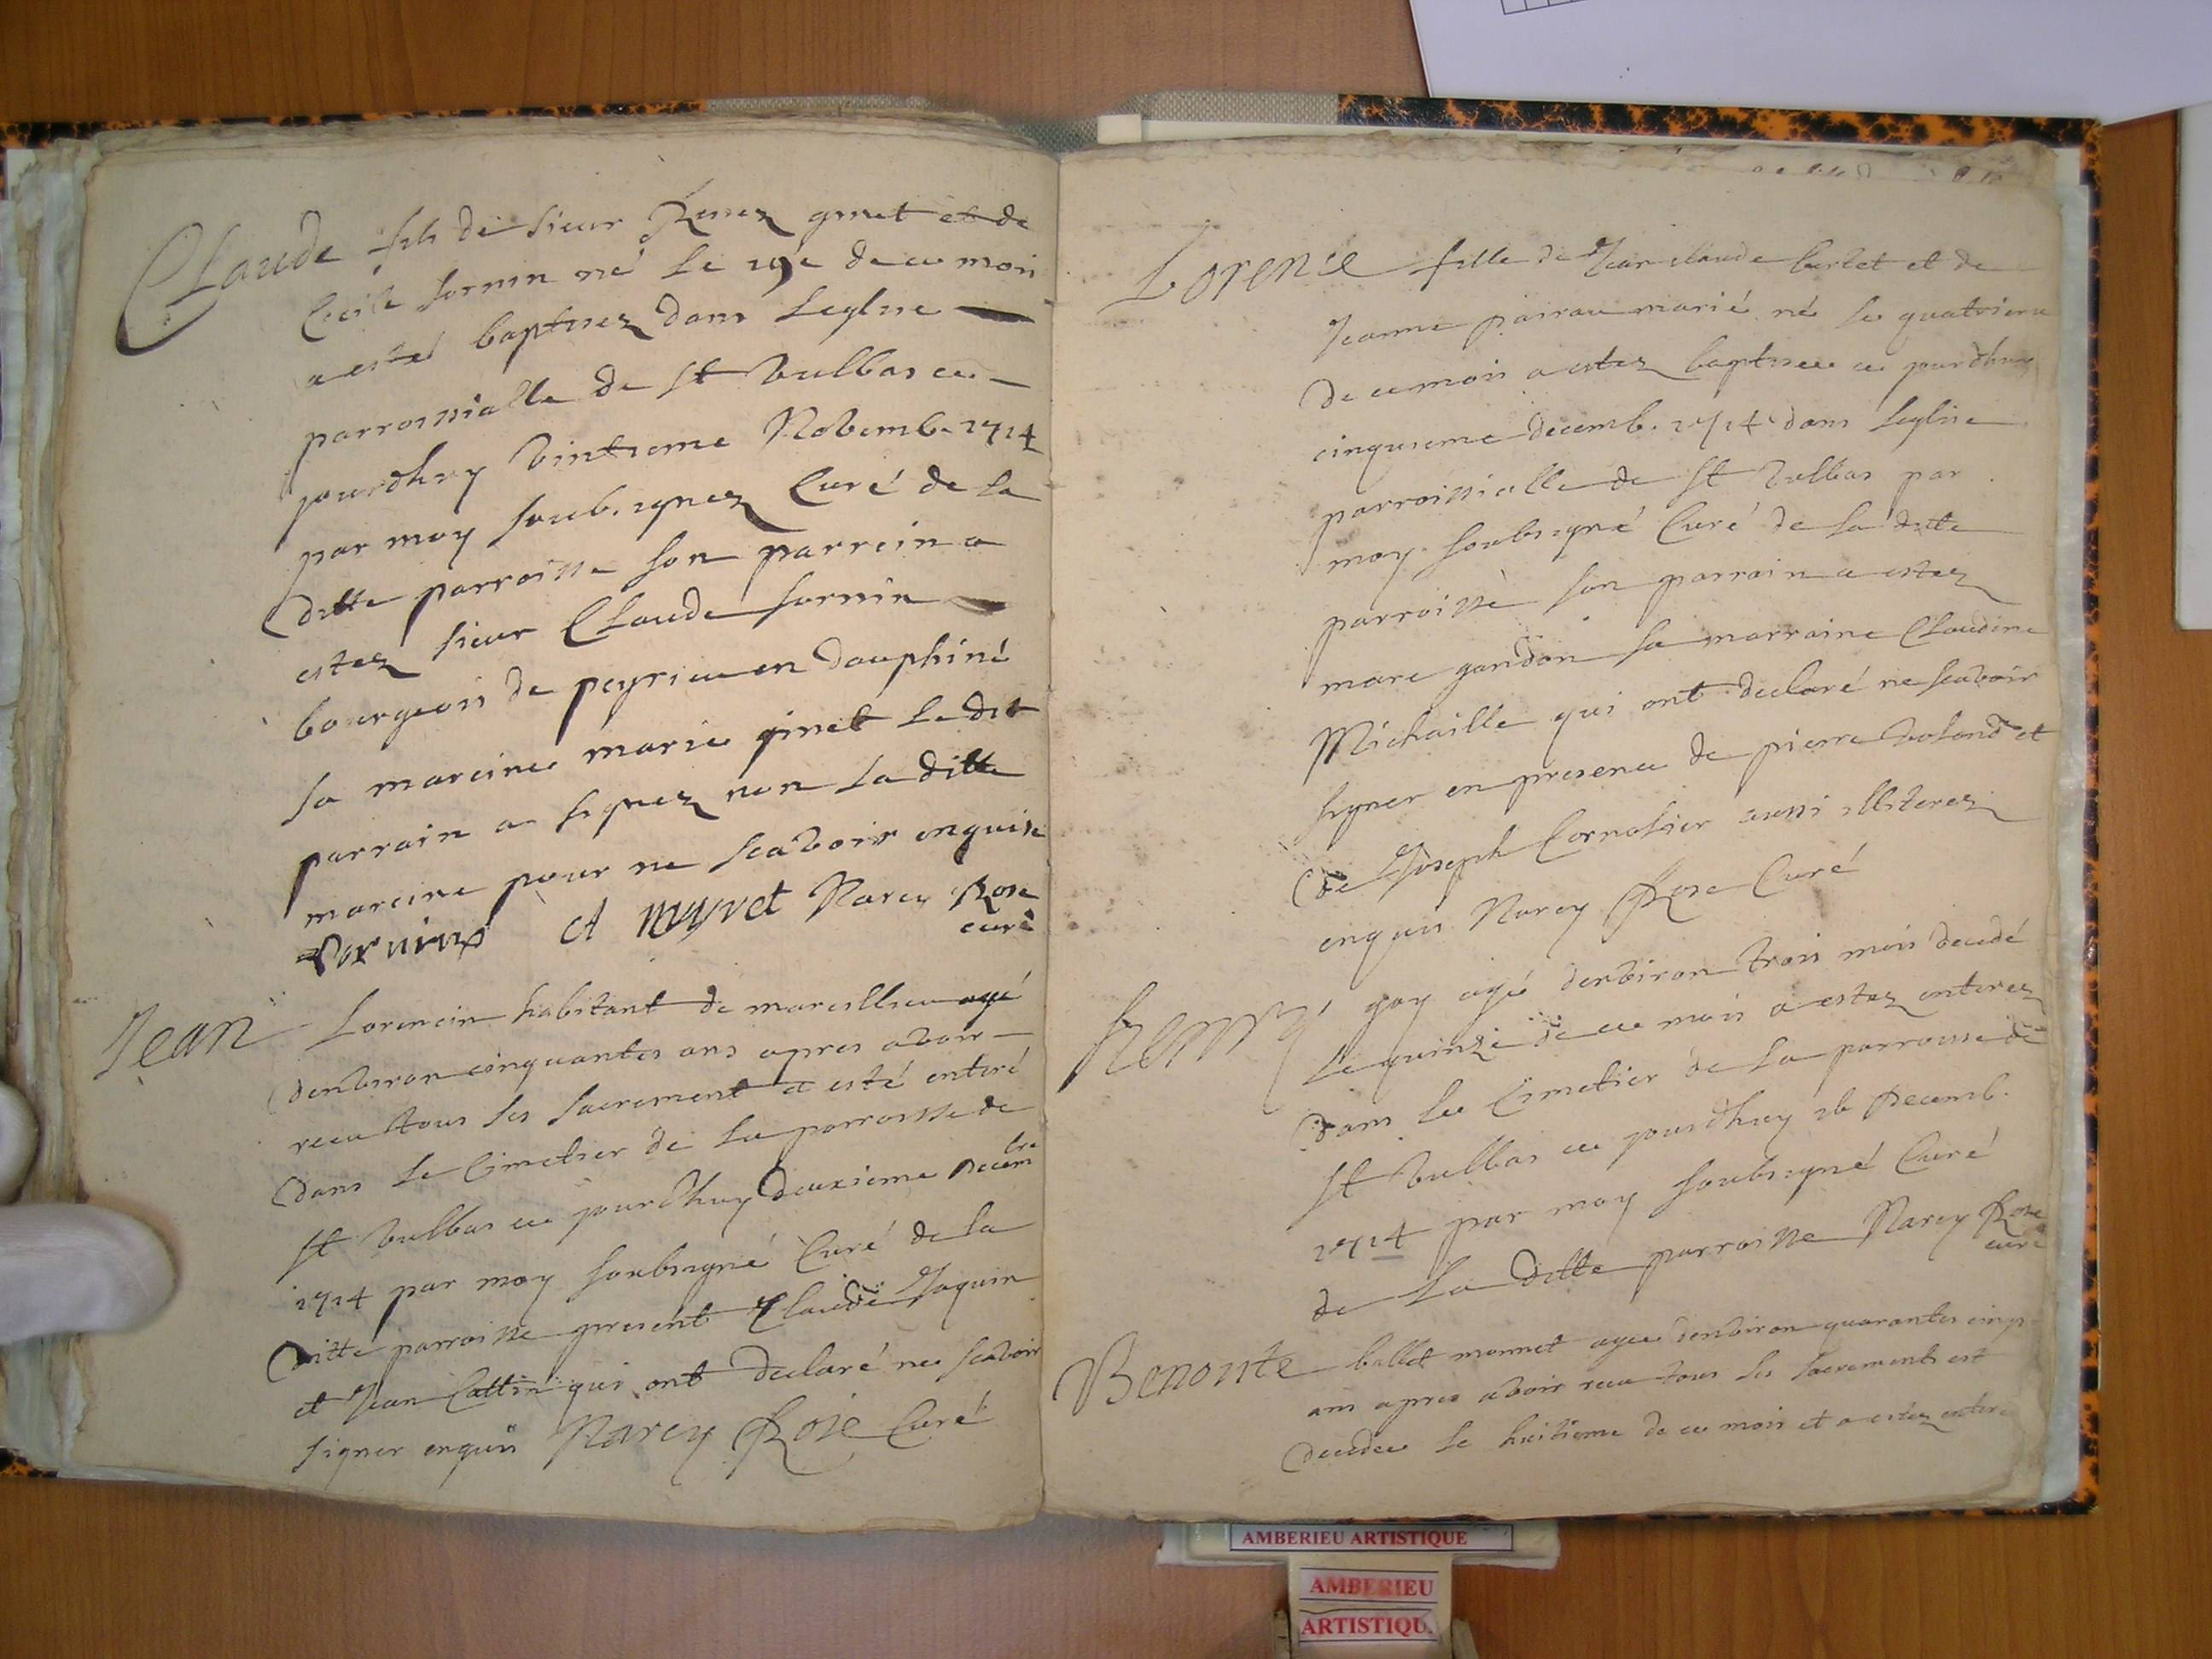 Claude fils de sieur Renez ginet et de
Cecile sornin né le 19e de ce mois
a esté baptisez dans leglise
parroissialle de st vulbas ce
jourdhuy vintieme Novemb. 1714
par moy soubsignez Curé de la
ditte parroisse son parrein a
estez sieur Claude sornin
bourgeois de peyrieu en dauphiné
sa mareine marie ginet le dit
parrain a signez non la ditte
mareine pour ne scavoir enquise
Narcy Rose
curé
Jean Lorencin habitant de marcillieu agé
denviron cinquantes ans apres avoir
receu tous les sacrement a esté enteré
dans le Cimetier de la parroisse de
st vulbas ce jourdhuy deuxieme Decembre
1714 par moy soubsigné Curé de la
ditte parroisse present Claude Jaquin
et Jean Cattin qui ont declaré ne scavoir
signer enquis Narcy Rose Curé
Lorence fille de Jean claude berlet et de
Jeanne marié né le quatrieme
de ce mois a estez baptisee ce jourdhuy
cinquieme decemb. 1714 dans leglise
parroissialle de st vulbas par
moy soubsigné Curé de la ditte
parroisse son parrain a estez
marc gandon sa marraine Claudine
Michaille qui ont declaré ne scavoir
signer en presence de pierre voland et
de Joseph Cornolier aussi illiterez
enquis Narcy Rose Curé
hemy gay agé denviron trois mois decedé
le quinze de ce mois a estez enterez
dans le Cimetier de la parroisse de
st vulbas ce jourdhuy 16 Decemb.
1714 par moy soubsigné Curé
de la ditte parroisse Narcy Rose
curé
Benoite ballet monnet agee denviron quarantes cinq
ans apres avoir receu tous les sacrements est
decedee le huitieme de ce mois et a estez entere
AMBERIEU ARTISTIQUE
AMBERIEU
ARTISTIQU